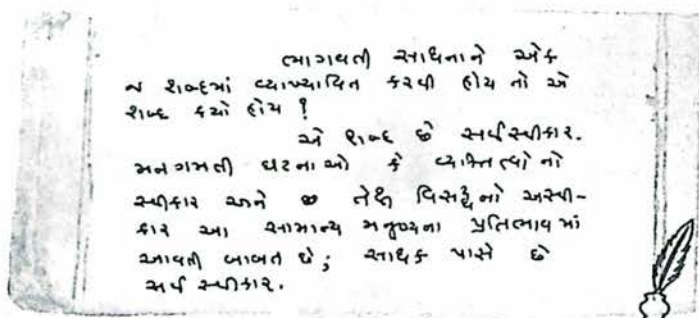 ભાગવતી સાધનાને એક
જ શબ્દમાં વ્યાખ્યાયિત કરવી હોય તો એ
શબ્દ કયો હોય ?
એ શબ્દ છે સર્વસ્વીકાર.
મનગમતી ઘટનાઓ કે વ્યક્તિત્વોનો
સ્વીકાર અને તેથી વિરુદ્ધનો અસ્વી-
કાર આ સામાન્ય મનુષ્યના પ્રતિભાવમાં
આવતી બાબત છે; સાધક પાસે છે
સર્વ સ્વીકાર.